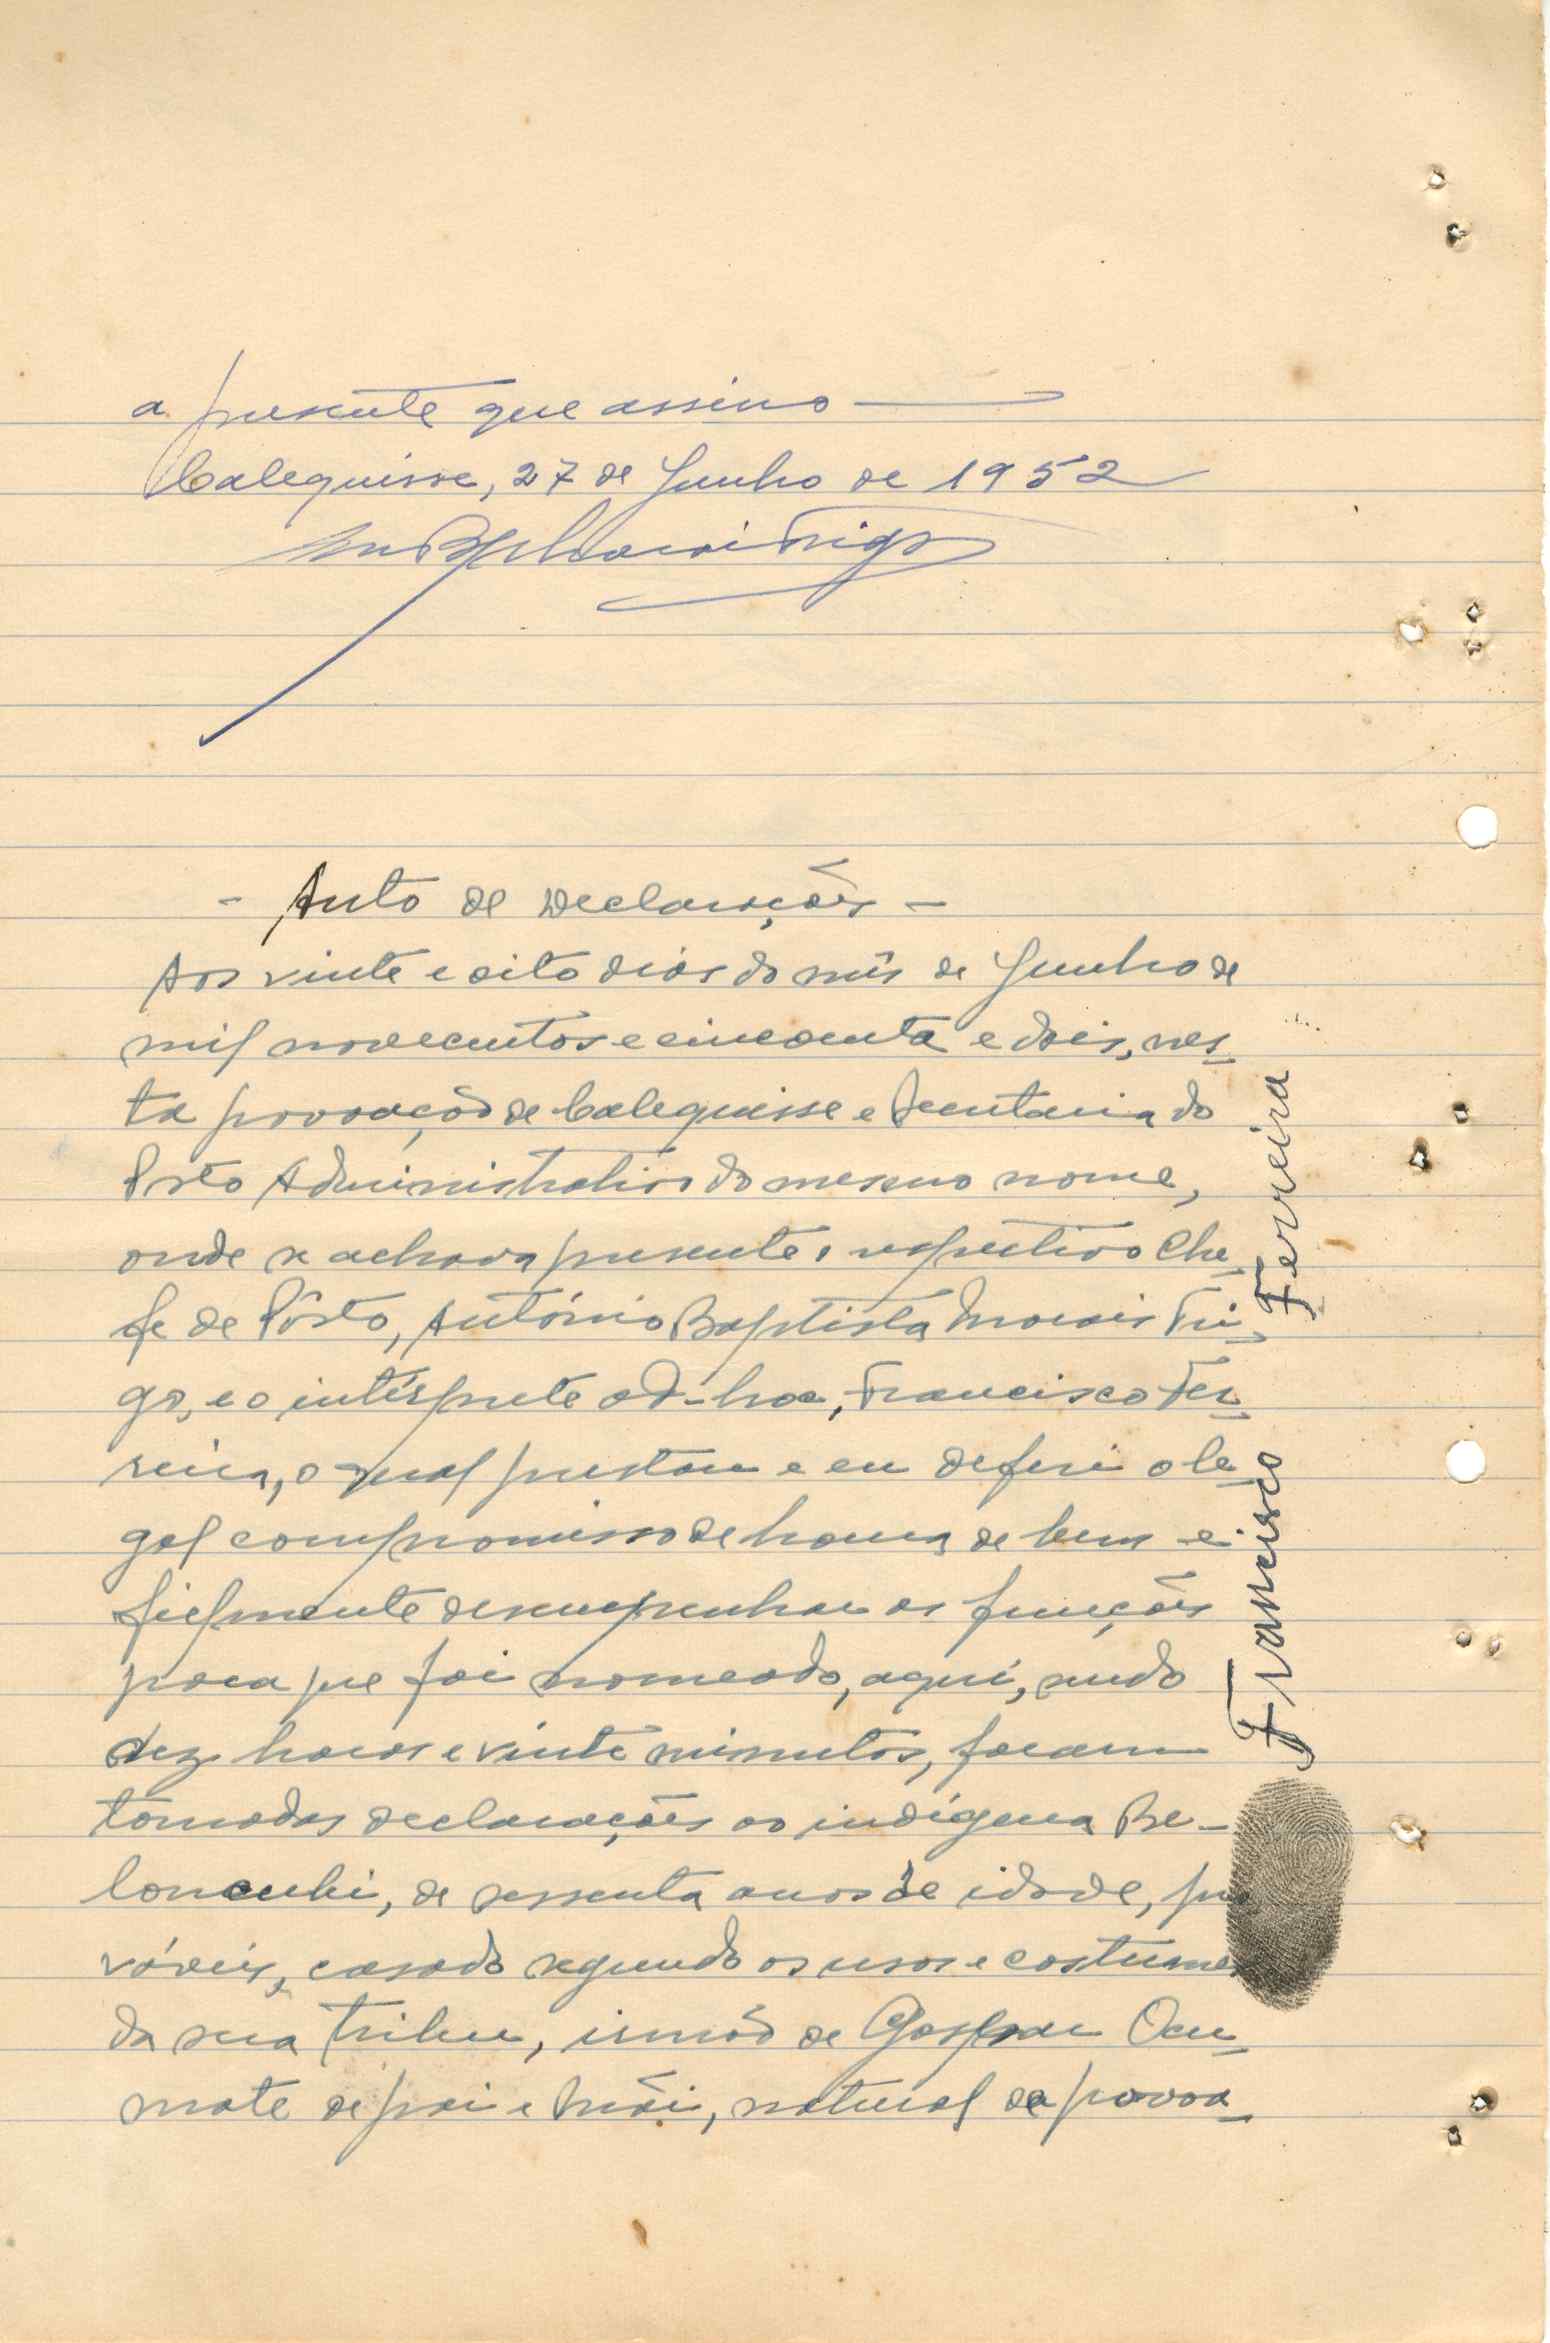 a presente que assino
Calequisse, 27 de Junho de 1952
- Auto de Declarações -
Aos vinte e oito dias do mês de Junho de
mil novecentos e cincoenta e dois, nes-
ta povoação de Calequisse e Secretaria do
Posto Administrativo do mesmo nome,
onde se achava presente o respectivo Che-
fe de Pôsto, António Baptista Morais Tri-
go, e o intérprete ad-hoc, Francisco Fer-
reira, o qual prestou e eu deferi o le-
gal compromisso de honra de bem e
fielmente desempenhar as funções
para que foi nomeado, aqui, sendo
dez horas e vinte minutos, foram
tomadas declarações ao indígena Be-
loncubi, de sessenta anos de idade, pro
váveis, casado segundo os usos e costumes
da sua tribu, irmão de Gaspar Ocu-
mate de pai e mãi, natural da povoa-
Francisco Ferreira